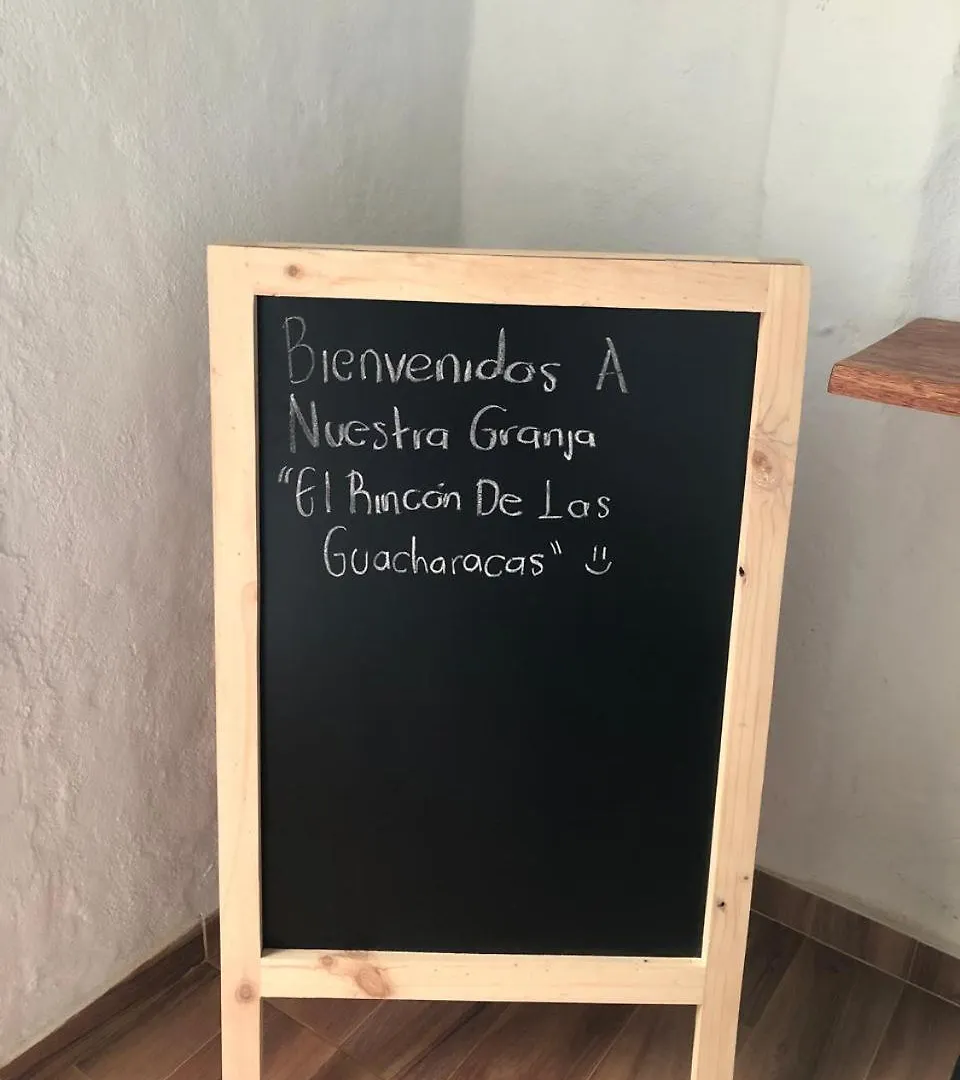 Bienvenidos A
Nuestra Granja
"El Rincón De Las
Guacharacas" :)